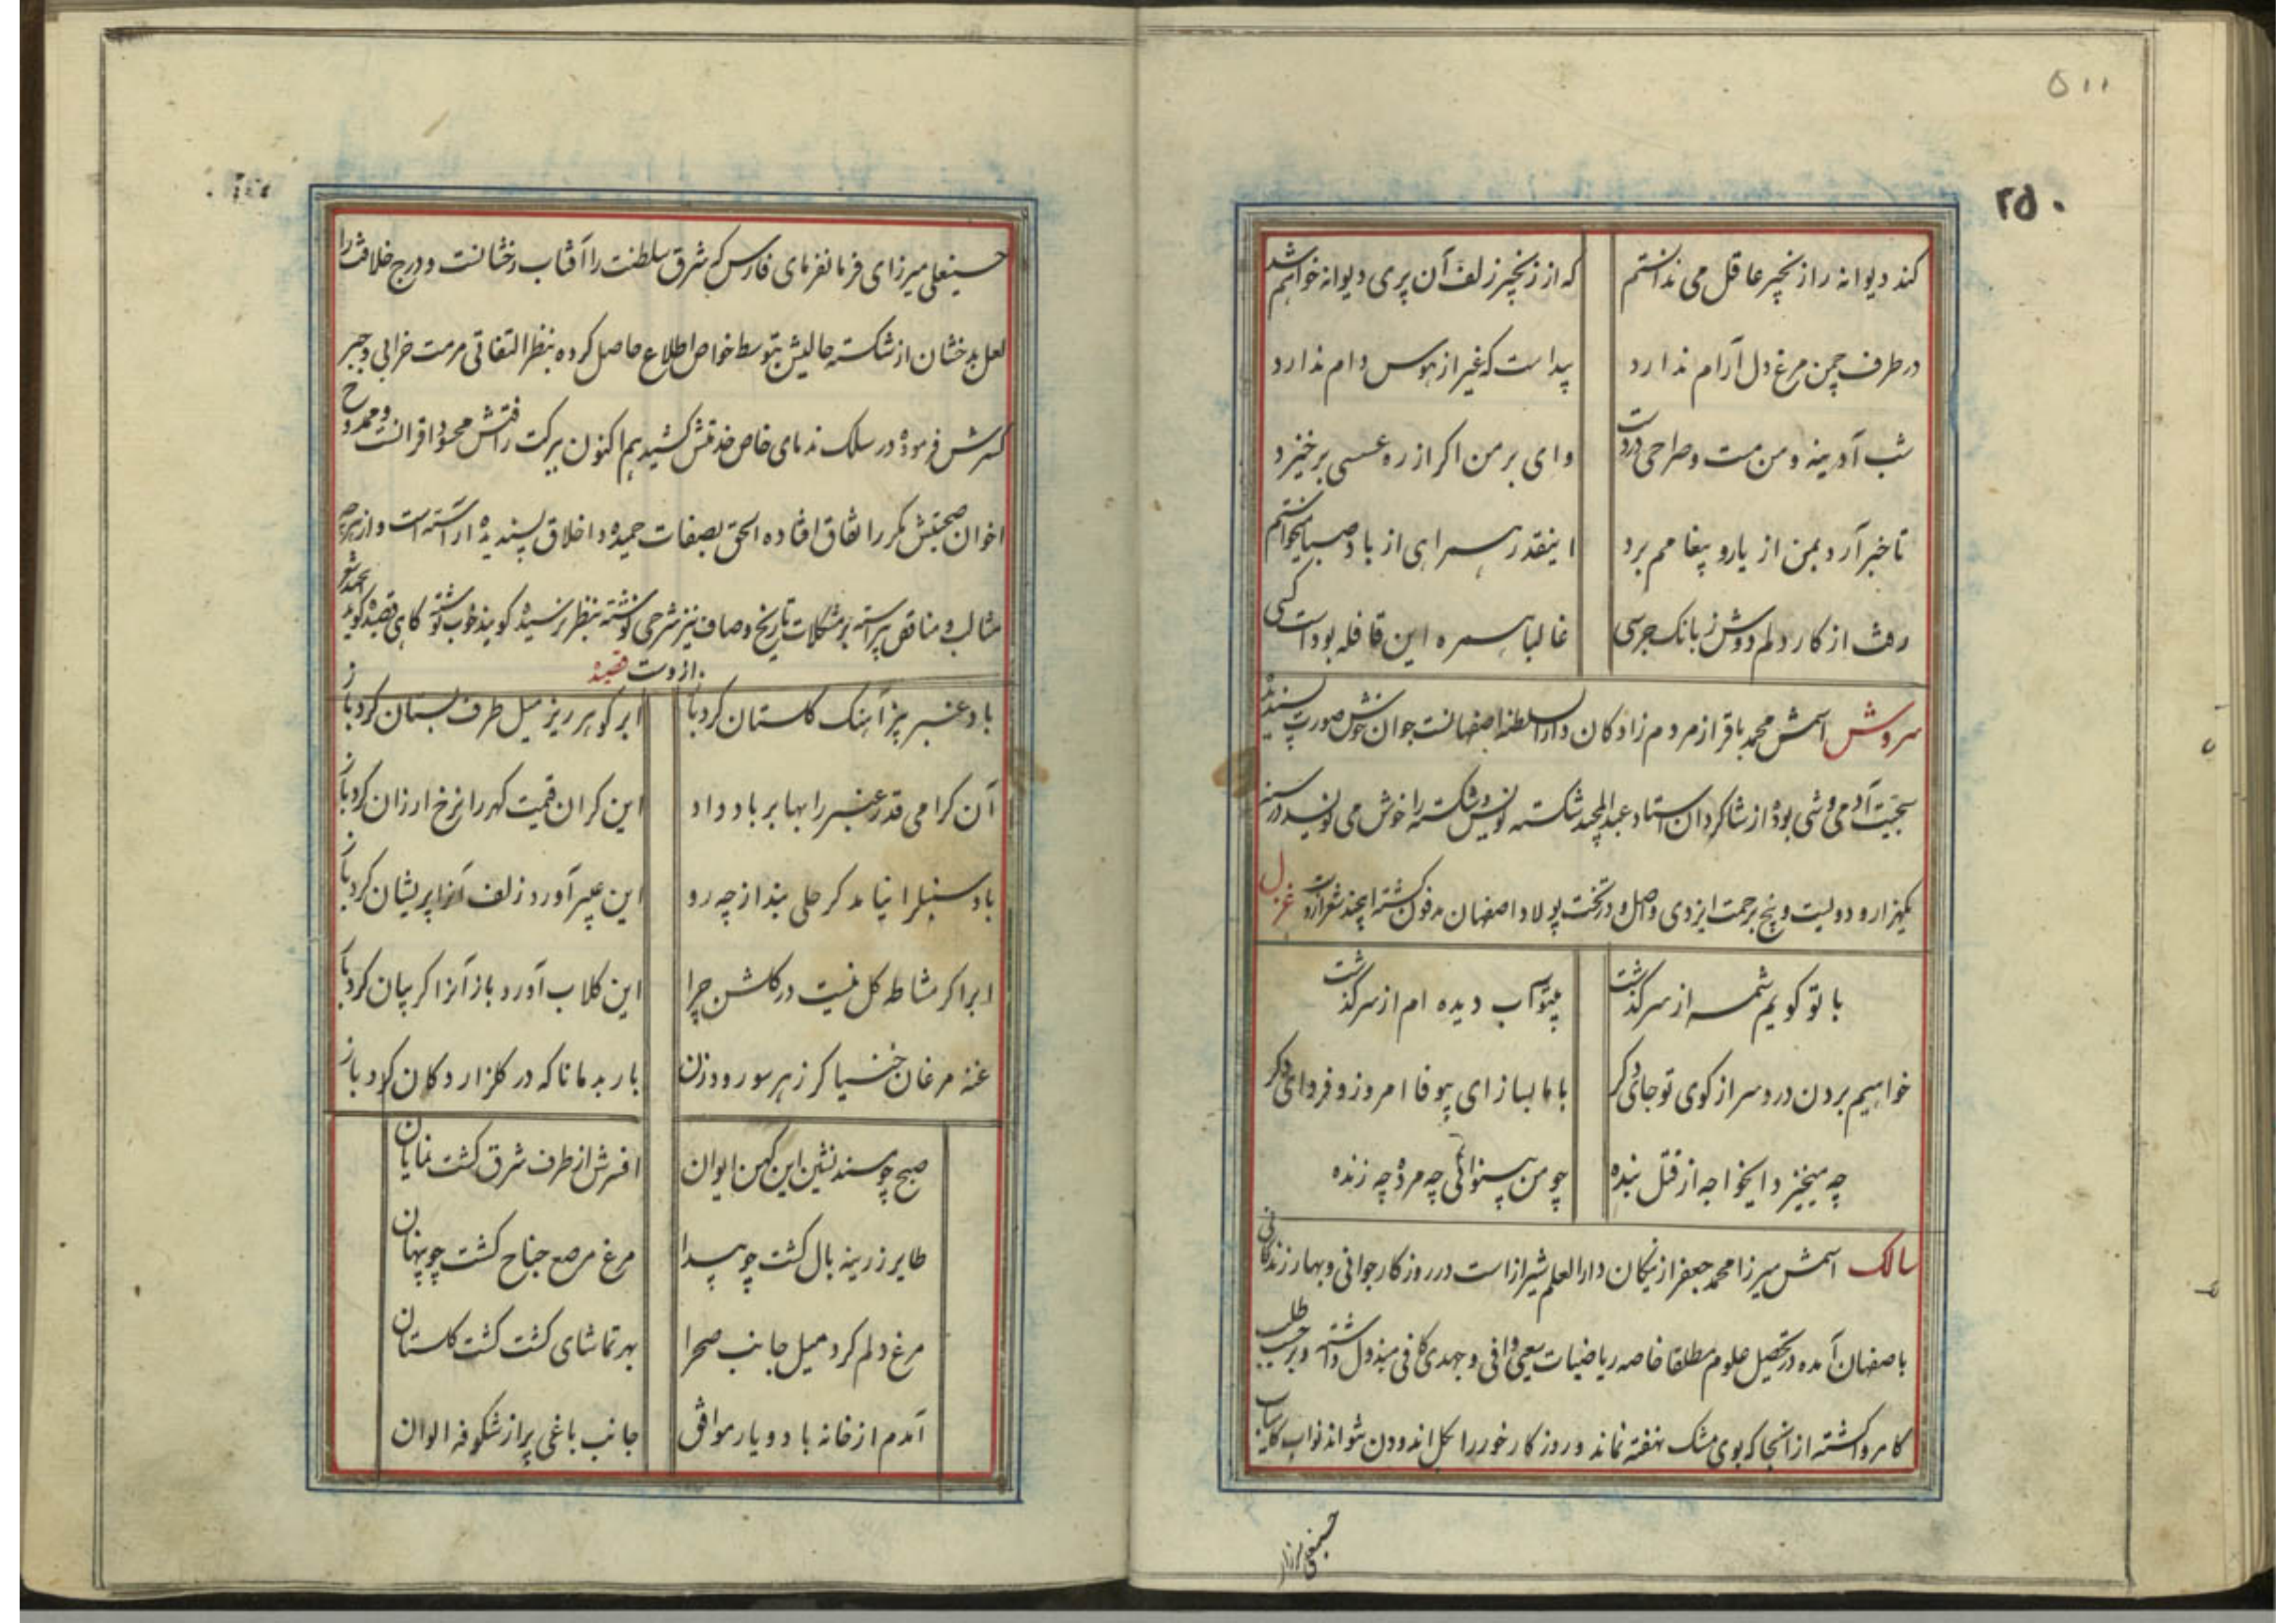 ۵۱۱
۲۵۰
کند دیوانه را زنجیر عاقل می ندانستم که از زنجیر زلف آن پری دیوانه خواهم شد
در طرف چمن مرغ دل آرام ندارد پیداست که غیر از هوس دام ندارد
شب آدینه و من مست و صراحی در دست وای بر من اگر از ره عسسی برخیزد
تا خبر آرد بمن از یار و پیغامم برد اینقدر همراهی از باد صبا میخواستم
رفت از کار دلم دوش ز بانک جرسی غالبا همره این قافله بوداست کسی
سروش اسمش محمد باقر از مردم زادکان دارالسلطنه اصفهانست جوان خوش صورت پسندیده
سجیت آدمی وشی بوده از شاکردان استاد عبدالمجید شکسته نویس و شکسته را خوش می نویسد در سنه
یکهزار و دویست و پنج برحمت ایزدی واصل و در تخت پولاد اصفهان مدفون کشته اینچند شعر ازوست غزل
با تو کویم شمه از سرکذشت بیتو آب دیده ام از سر کذشت
خواهیم بردن درد سر از کوی تو جای دکر با ما بساز ای بیوفا امروز و فردای دکر
چه میخیزد ایخواجه از قتل بنده چو من بینوائی چه مرده چه زنده
سالک اسمش میرزا محمد جعفر از نیکان دارالعلم شیراز است در روزکار جوانی و بهار زندکانی
باصفهان آمده در تحصیل علوم مطلقا خاصه ریاضیات سعیی وافی و جهدی کافی مبذول داشته و بر حسب طلب
کامروا کشته از آنجا که بوی مشک نهفته نماند و روزکار خور را بکل اندودن نتواند نواب کامیاب
حسینعلی میرزا
حسینعلی میرزای فرمانفرمای فارس که شرق سلطنت را آفتاب رخشانست و درج خلافت را
لعل بدخشان از شکسته حالیش بتوسط خواص اطلاع حاصل کرده بنظر التفاتی مرمت خرابی و جبر
کسرش فرموده در سلک ندمای خاص خدمتش کشید هم اکنون ببرکت رافتش محسود اقرانست و ممدوح
اخوان صحبتش مکرر اتفاق افتاده الحق بصفات حمیده و اخلاق پسندیده آراسته است و از هرچه
مثالب و مناقص پیراسته بر مشکلات تاریخ وصاف نیز شرحی نوشته بنظر نرسیده کویند خوب نوشته کاهی قصیده کوید
ازوست قصیده
باد عنبر بیز آهنک کلستان کرد باز ابر کوهر ریز میل طرف بستان کرد باز
آن کرامی قدر عنبر را بها بر باد داد این کران قیمت کهر را نرخ ارزان کرد باز
باد سنبل را نیامد کر حلی بند از چه رو این عبیر آورد زلف آنرا پریشان کرد باز
ابر اکر مشاطه کل نیست در کلشن چرا این کلاب آورد باز آنرا کریبان کرد باز
غنه مرغان خنیاکر ز هر سو رود زن باربد مانا که در کلزار دکان کرد باز
صبح چو مسند نشین این کهن ایوان افسرش از طرف شرق کشت نمایان
طایر زرینه بال کشت چو پیدا مرغ مرصع جناح کشت چو پنهان
مرغ دلم کرد میل جانب صحرا بهر تماشای کشت کشت کلستان
آمدم از خانه با دو یار موافق جانب باغی پر از شکوفه الوان